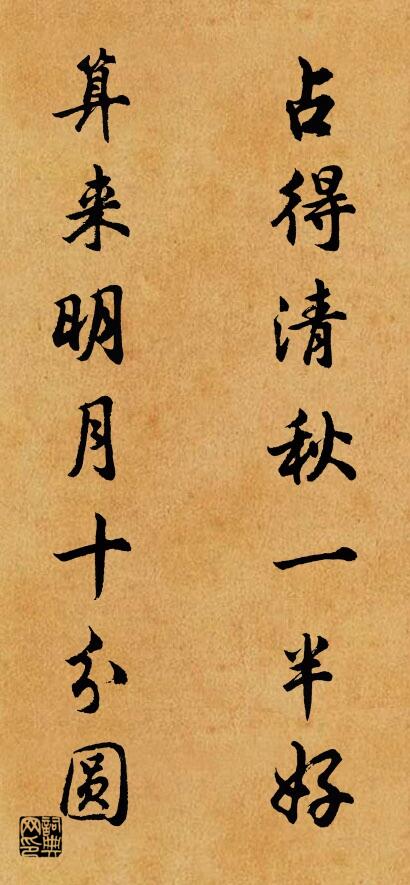 占得清秋一半好
算来明月十分圆
詞典网印